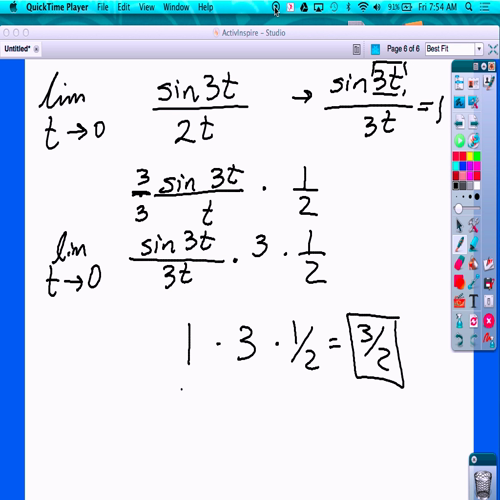 QuickTime Player File Edit View Window Help 91% Fri 7:54 AM
ActivInspire - Studio
Untitled* Page 6 of 6 Best Fit
lim t→0 sin 3t / 2t → sin 3t / 3t = 1
3/3 sin 3t / t · 1/2
lim t→0 sin 3t / 3t · 3 · 1/2
1 · 3 · 1/2 = 3/2